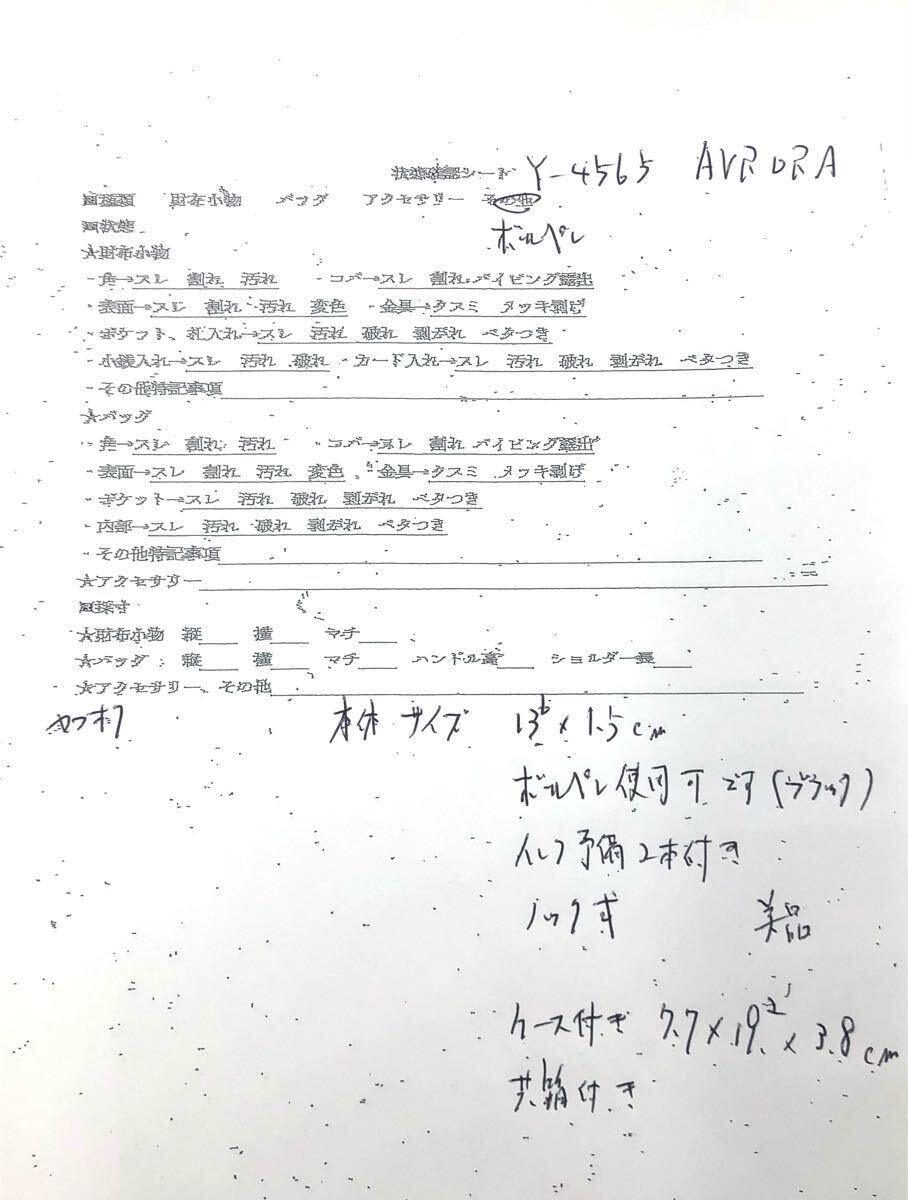 状態確認シート Y-4565 AURORA
■種類 財布小物 バッグ アクセサリー その他
ボールペン
■状態
★財布小物
・角→スレ 割れ 汚れ ・コバ→スレ 割れ パイピング露出
・表面→スレ 割れ 汚れ 変色 ・金具→クスミ メッキ剥げ
・ポケット、札入れ→スレ 汚れ 破れ 剥がれ ベタつき
・小銭入れ→スレ 汚れ 破れ ・カード入れ→スレ 汚れ 破れ 剥がれ ベタつき
・その他特記事項
★バッグ
・角→スレ 割れ 汚れ ・コバ→スレ 割れ パイピング露出
・表面→スレ 割れ 汚れ 変色 ・金具→クスミ メッキ剥げ
・ポケット→スレ 汚れ 破れ 剥がれ ベタつき
・内部→スレ 汚れ 破れ 剥がれ ベタつき
・その他特記事項
★アクセサリー
■採寸
★財布小物 縦 横 マチ
★バッグ 縦 横 マチ ハンドル高 ショルダー長
★アクセサリー、その他
ヤフオク 本体サイズ 13.6×1.5cm
ボールペン使用可です(ブラック)
予備2本付き
ノック式 美品
ケース付き 7.7×19.2×3.8cm
共箱付き